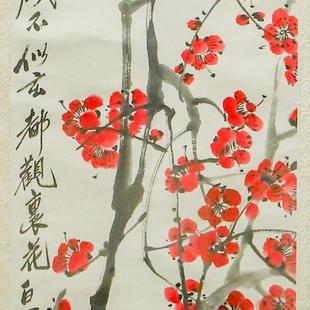 不似玄都觀裏花